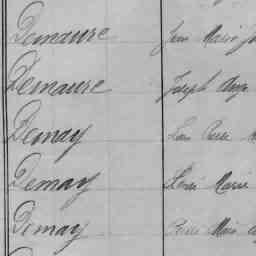 Demaure Jean Marie
Demaure Joseph
Demay Pierre
Demay Marie
Demay Pierre Marie